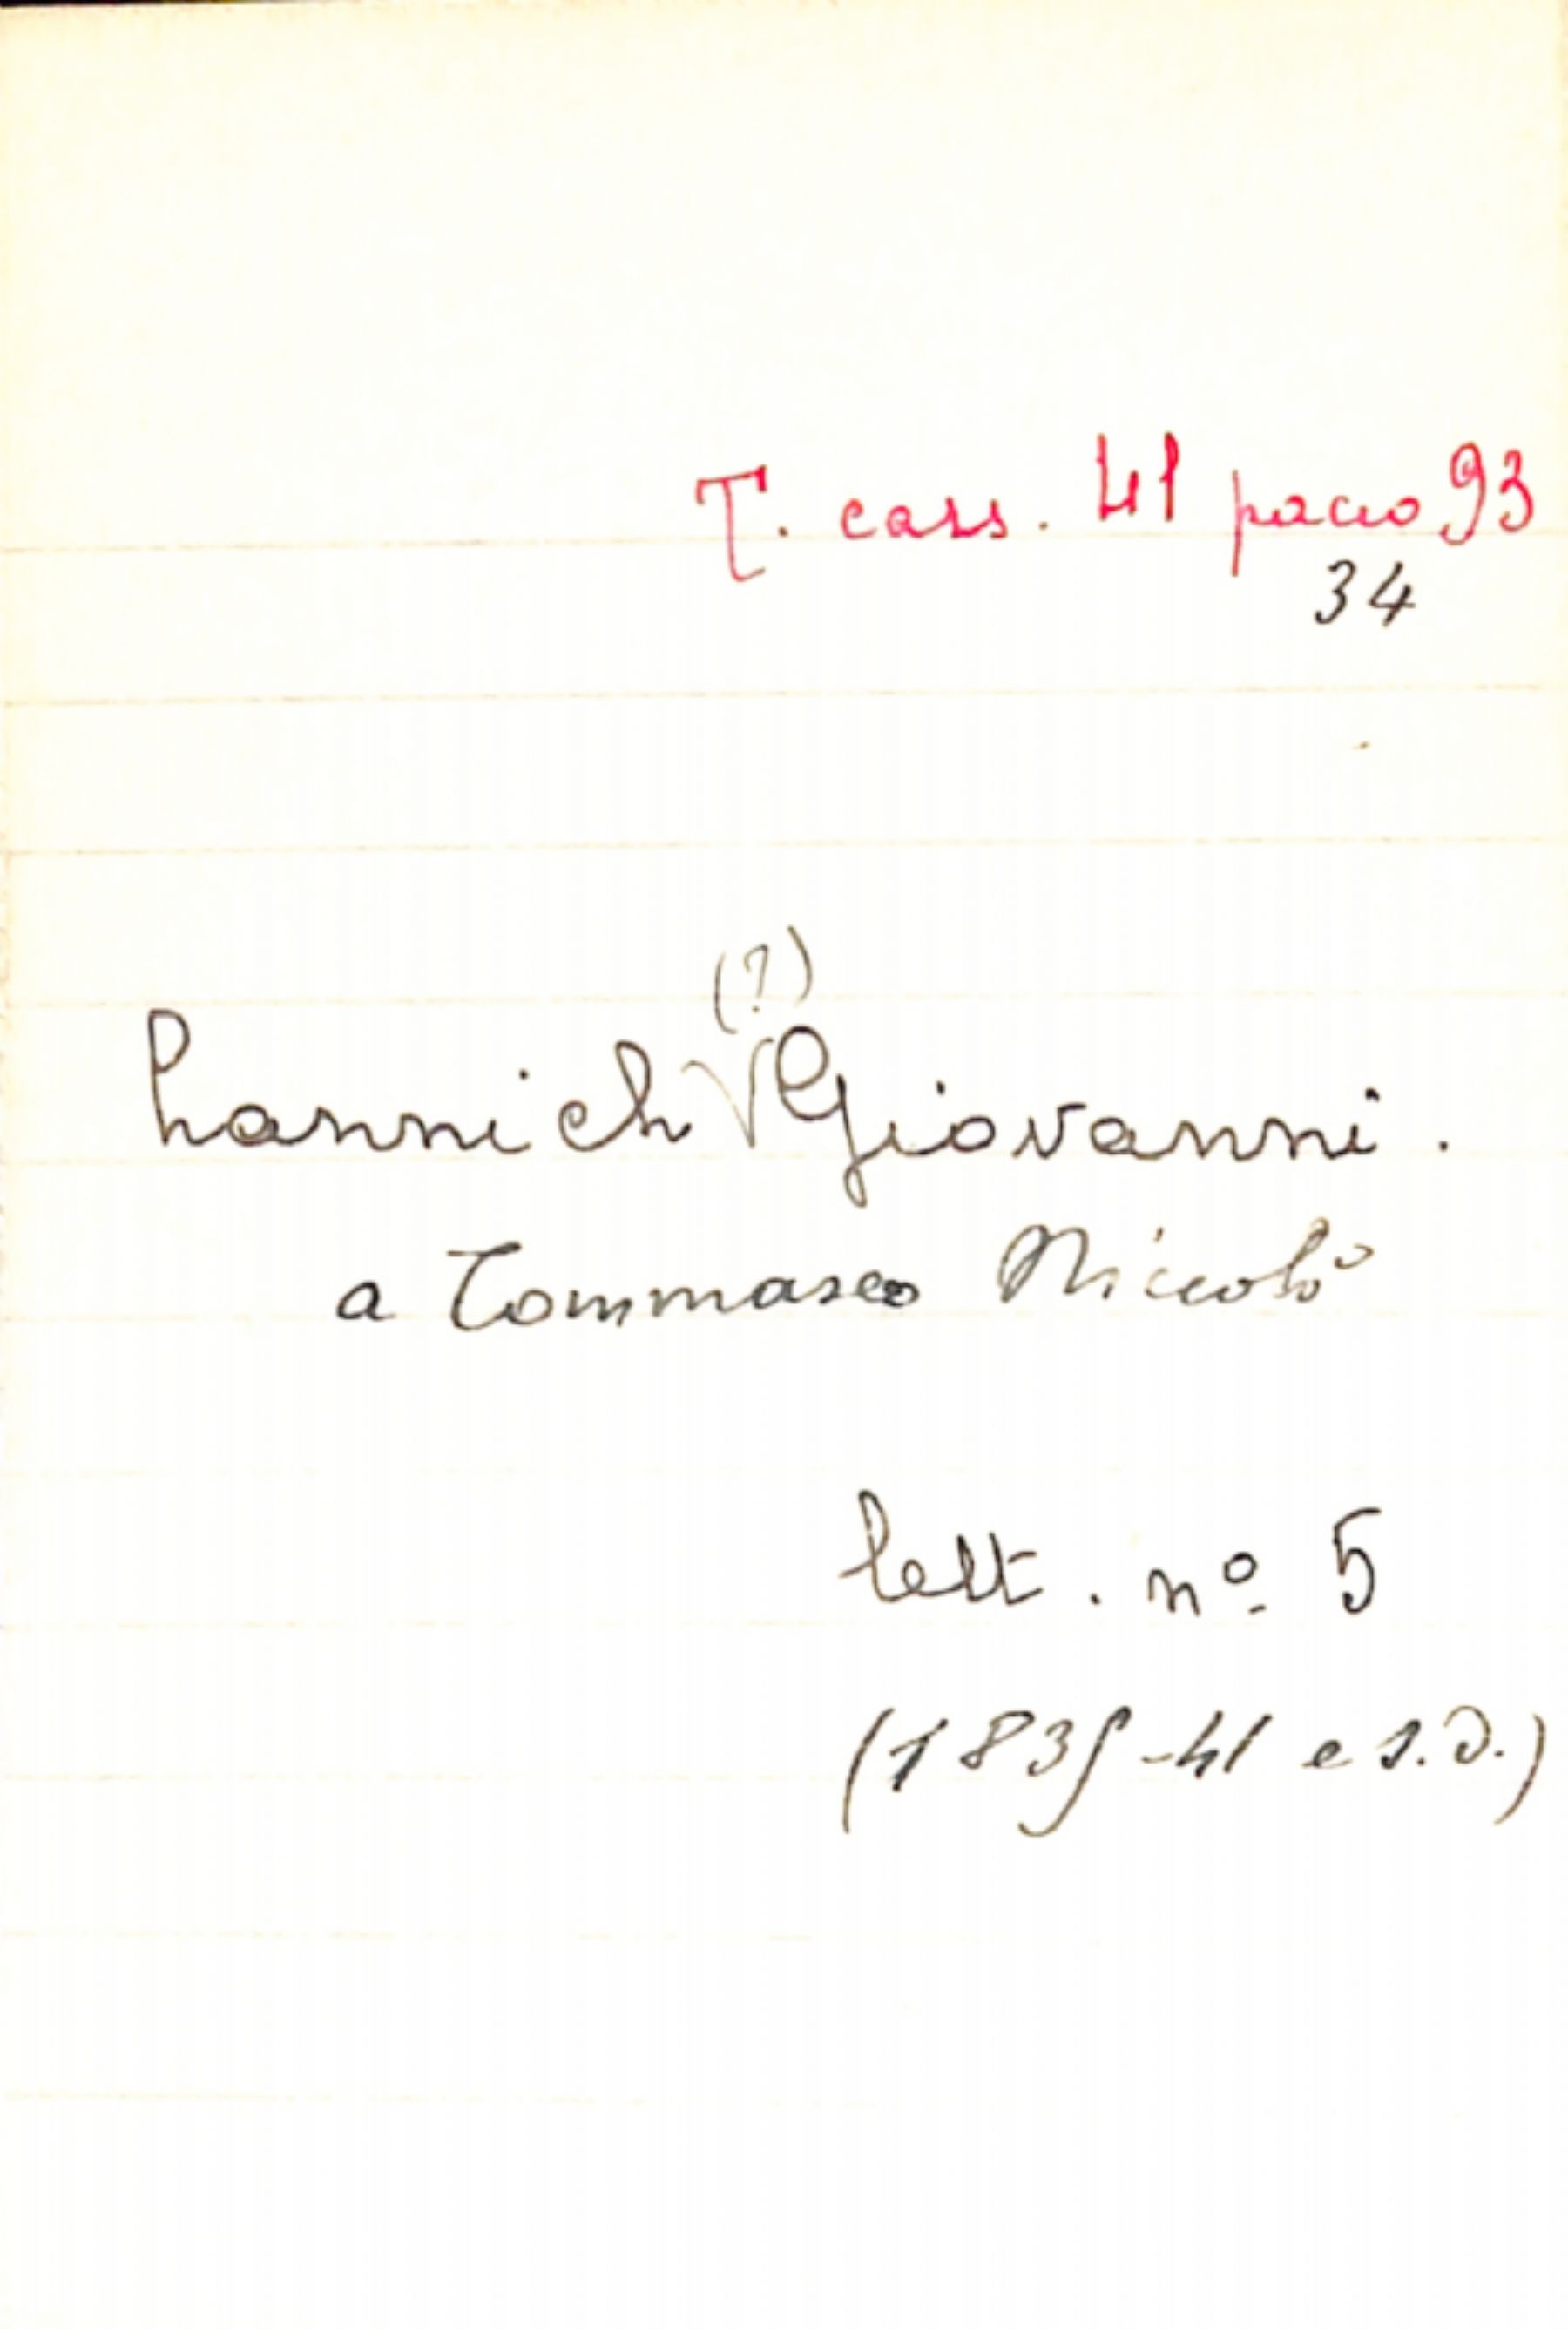 T. cass. 41 pacco 93
34
(?)
Lannich √ Giovanni.
a Tommaseo Niccolò
lett. nº 5
(1835-41 e s.d.)